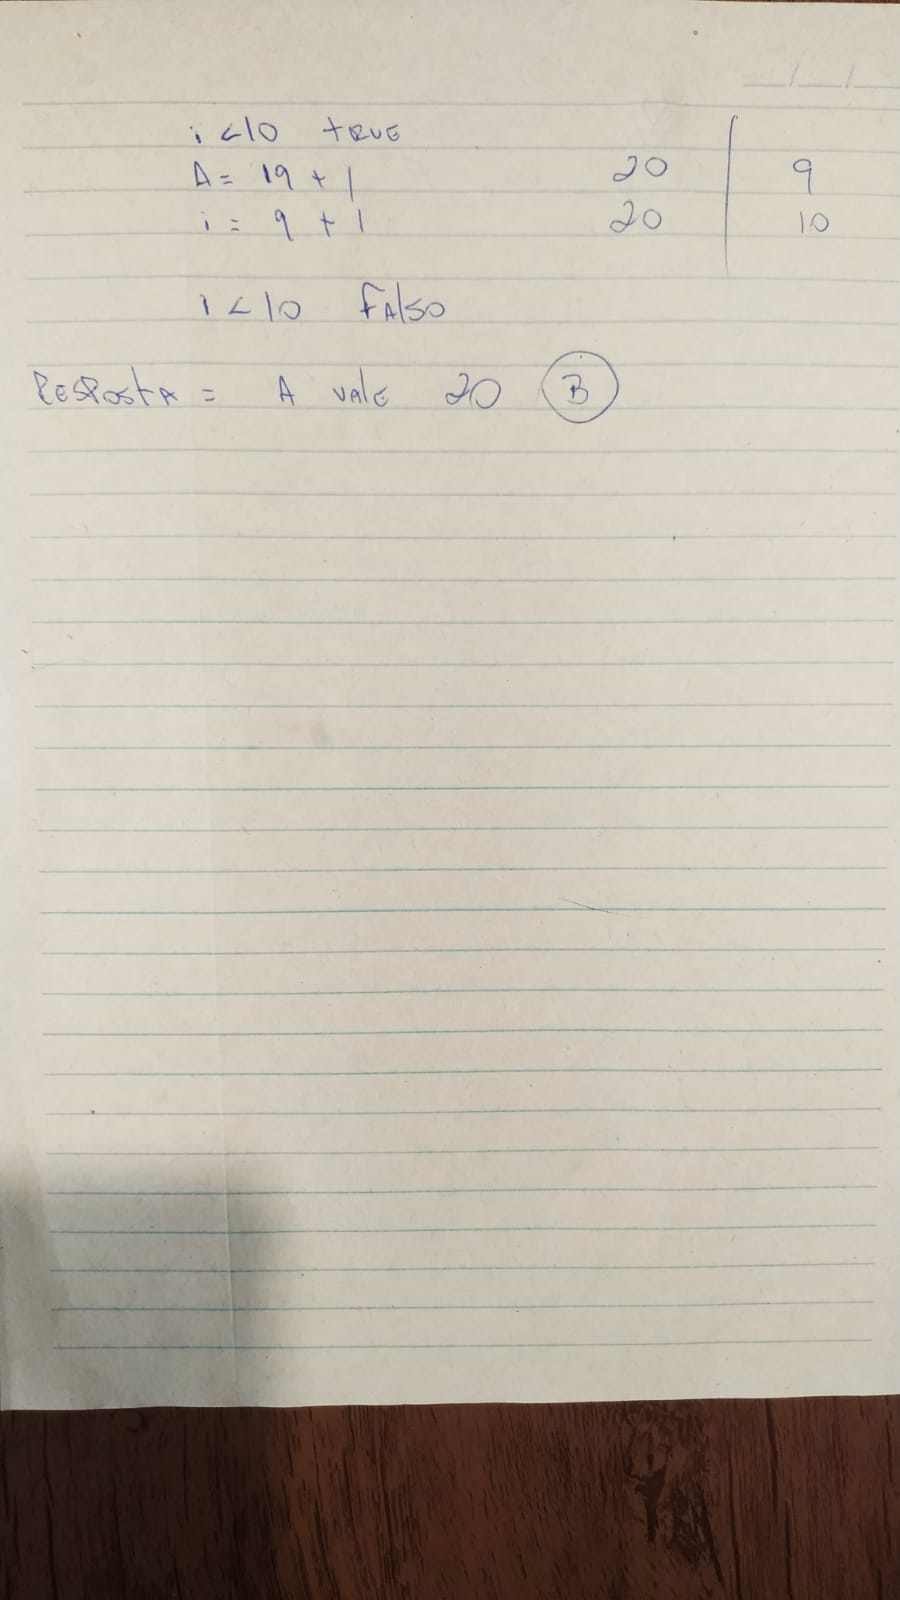 i < 10 TRUE
A = 19 + 1 20 9
i = 9 + 1 20 10
i < 10 FAlSO
RESPostA = A VAlE 20 B